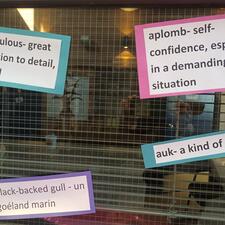 ulous- great
ion to detail,
aplomb- self-
confidence, esp
in a demanding
situation
auk- a kind of
lack-backed gull - un
goéland marin